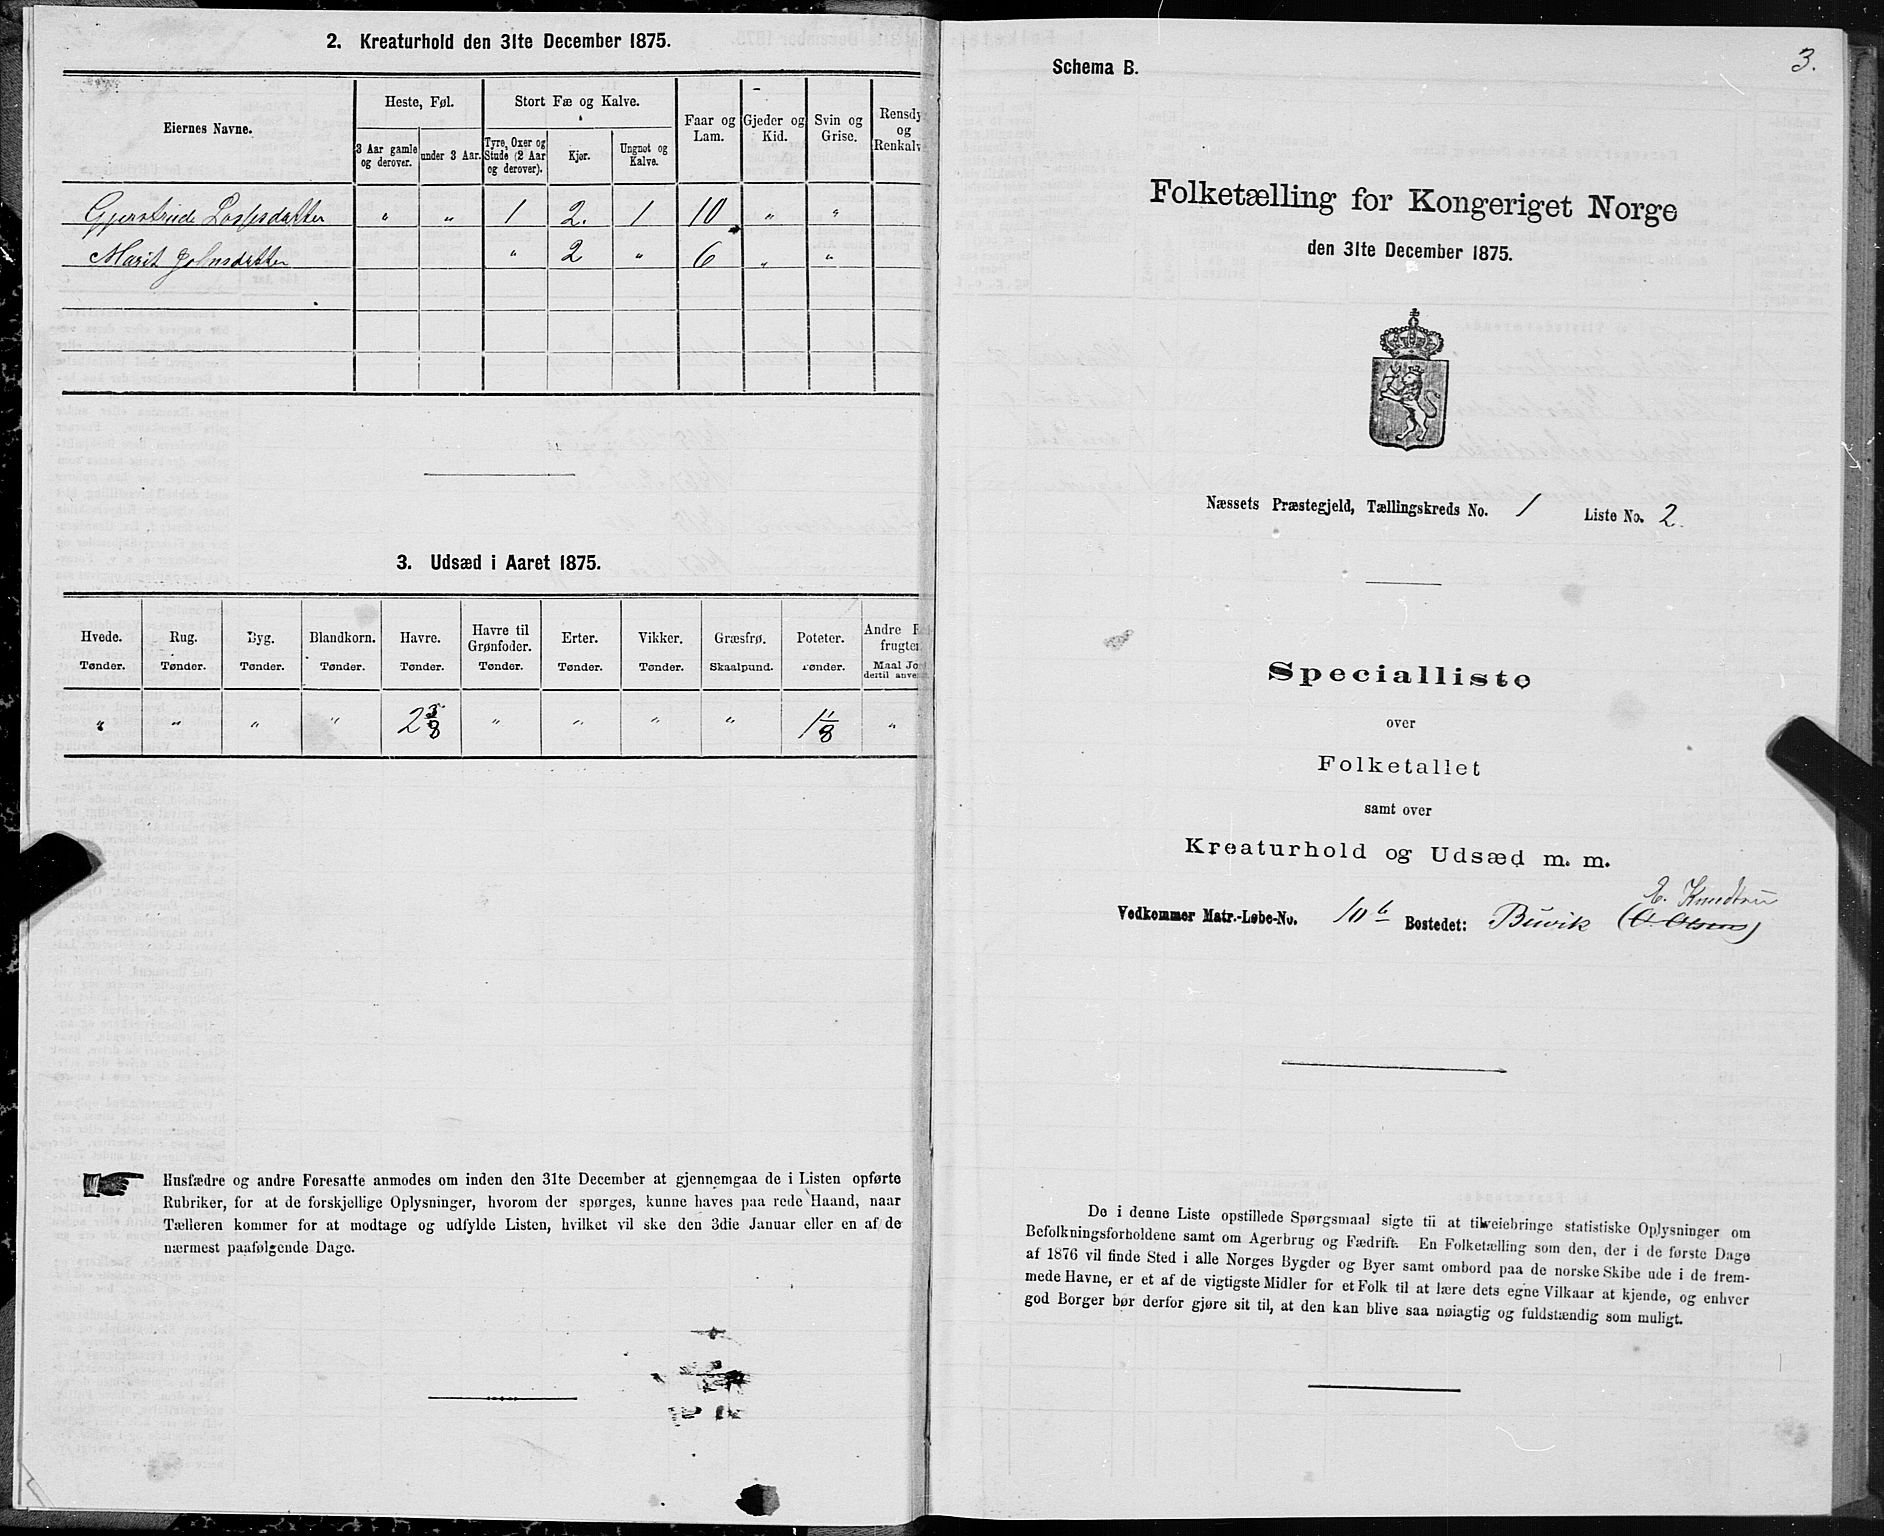 2. Kreaturhold den 31te December 1875.
Eiernes Navne.
Heste, Føl.
Stort Fæ og Kalve.
Faar og Lam.
Gjeder og Kid.
Svin og Grise.
Rensdy
og
Renkalv
3 Aar gamle og derover.
under 3 Aar.
Tyre, Oxer og Stude (2 Aar og derover).
Kjør.
Ungnøt og Kalve.
Gjertrude " " 1 2. 1 10 " "
Marit Johnsdatter " 2 " 6 " "
3. Udsæd i Aaret 1875.
Hvede. Rug. Byg. Blandkorn. Havre. Havre til Grønfoder. Erter. Vikker. Græsfrø. Poteter. Andre
frugter
Tønder. Tønder. Tønder. Tønder. Tønder. Tønder. Tønder. Tønder. Skaalpund. Tønder. Maal Jord
dertil anve
" " " " 2 3/8 " " " " 1 1/8 "
Husfædre og andre Foresatte anmodes om inden den 31te December at gjennemgaa de i Listen opførte
Rubriker, for at de forskjellige Oplysninger, hvorom der spørges, kunne haves paa rede Haand, naar
Tælleren kommer for at modtage og udfylde Listen, hvilket vil ske den 3die Januar eller en af de
nærmest paafølgende Dage.
3.
Schema B.
Folketælling for Kongeriget Norge
den 31te December 1875.
Næssets Præstegjeld, Tællingskreds No. 1 Liste No. 2.
Specialliste
over
Folketallet
samt over
Kreaturhold og Udsæd m. m.
E. Knudtsen
Vedkommer Matr.-Løbe-No. 10 b Bostedet: Buvik (O. Olsens)
De i denne Liste opstillede Spørgsmaal sigte til at tilveiebringe statistiske Oplysninger om
Befolkningsforholdene samt om Agerbrug og Fædrift. En Folketælling som den, der i de første Dage
af 1876 vil finde Sted i alle Norges Bygder og Byer samt ombord paa de norske Skibe ude i de frem-
mede Havne, er et af de vigtigste Midler for et Folk til at lære dets egne Vilkaar at kjende, og enhver
god Borger bør derfor gjøre sit til, at den kan blive saa nøiagtig og fuldstændig som muligt.